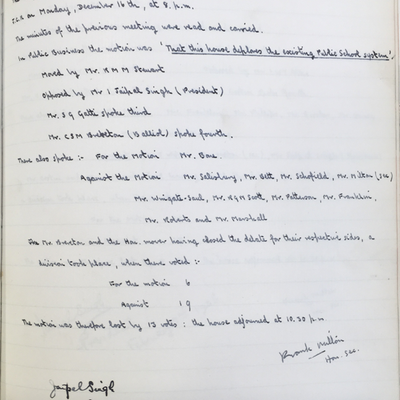 J.C.R. on Monday, December 16th, at 8. p.m.
The minutes of the previous meeting were read and carried.
In Public Business the motion was 'That this house deplores the existing Public School system'.
Moved by Mr. R M M Stewart
Opposed by Mr. I Jaipal Singh (President)
Mr. S G Gatti spoke third
Mr. C S M Brereton (Balliol) spoke fourth.
There also spoke :- For the Motion Mr. Bone.
Against the Motion Mr. Salisbury, Mr. Gett, Mr. Schofield, Mr. Milton (Sec)
Mr. Wingate-Saul, Mr. R G M Scott, Mr. Patterson, Mr. Franklin,
Mr. Roberts and Mr. Marshall
Mr. Brereton and the Hon. mover having closed the debate for their respective sides, a
division took place, when there voted :-
For the motion 6
Against 19
The motion was therefore lost by 13 votes : the house adjourned at 10.30 p.m.
Frank Milton
Hon. Sec.
Jaipal Singh